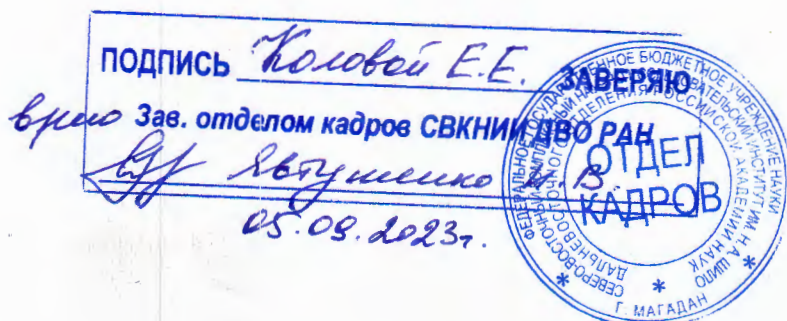 ПОДПИСЬ Коловой Е.Е. ЗАВЕРЯЮ
врио Зав. отделом кадров СВКНИИ ДВО РАН
Явтушенко И.В.
05.09.2023г.
ФЕДЕРАЛЬНОЕ ГОСУДАРСТВЕННОЕ БЮДЖЕТНОЕ УЧРЕЖДЕНИЕ НАУКИ
СЕВЕРО-ВОСТОЧНЫЙ КОМПЛЕКСНЫЙ НАУЧНО-ИССЛЕДОВАТЕЛЬСКИЙ ИНСТИТУТ ИМ. Н.А. ШИЛО
ДАЛЬНЕВОСТОЧНОГО ОТДЕЛЕНИЯ РОССИЙСКОЙ АКАДЕМИИ НАУК
ОТДЕЛ
КАДРОВ
* Г. МАГАДАН *